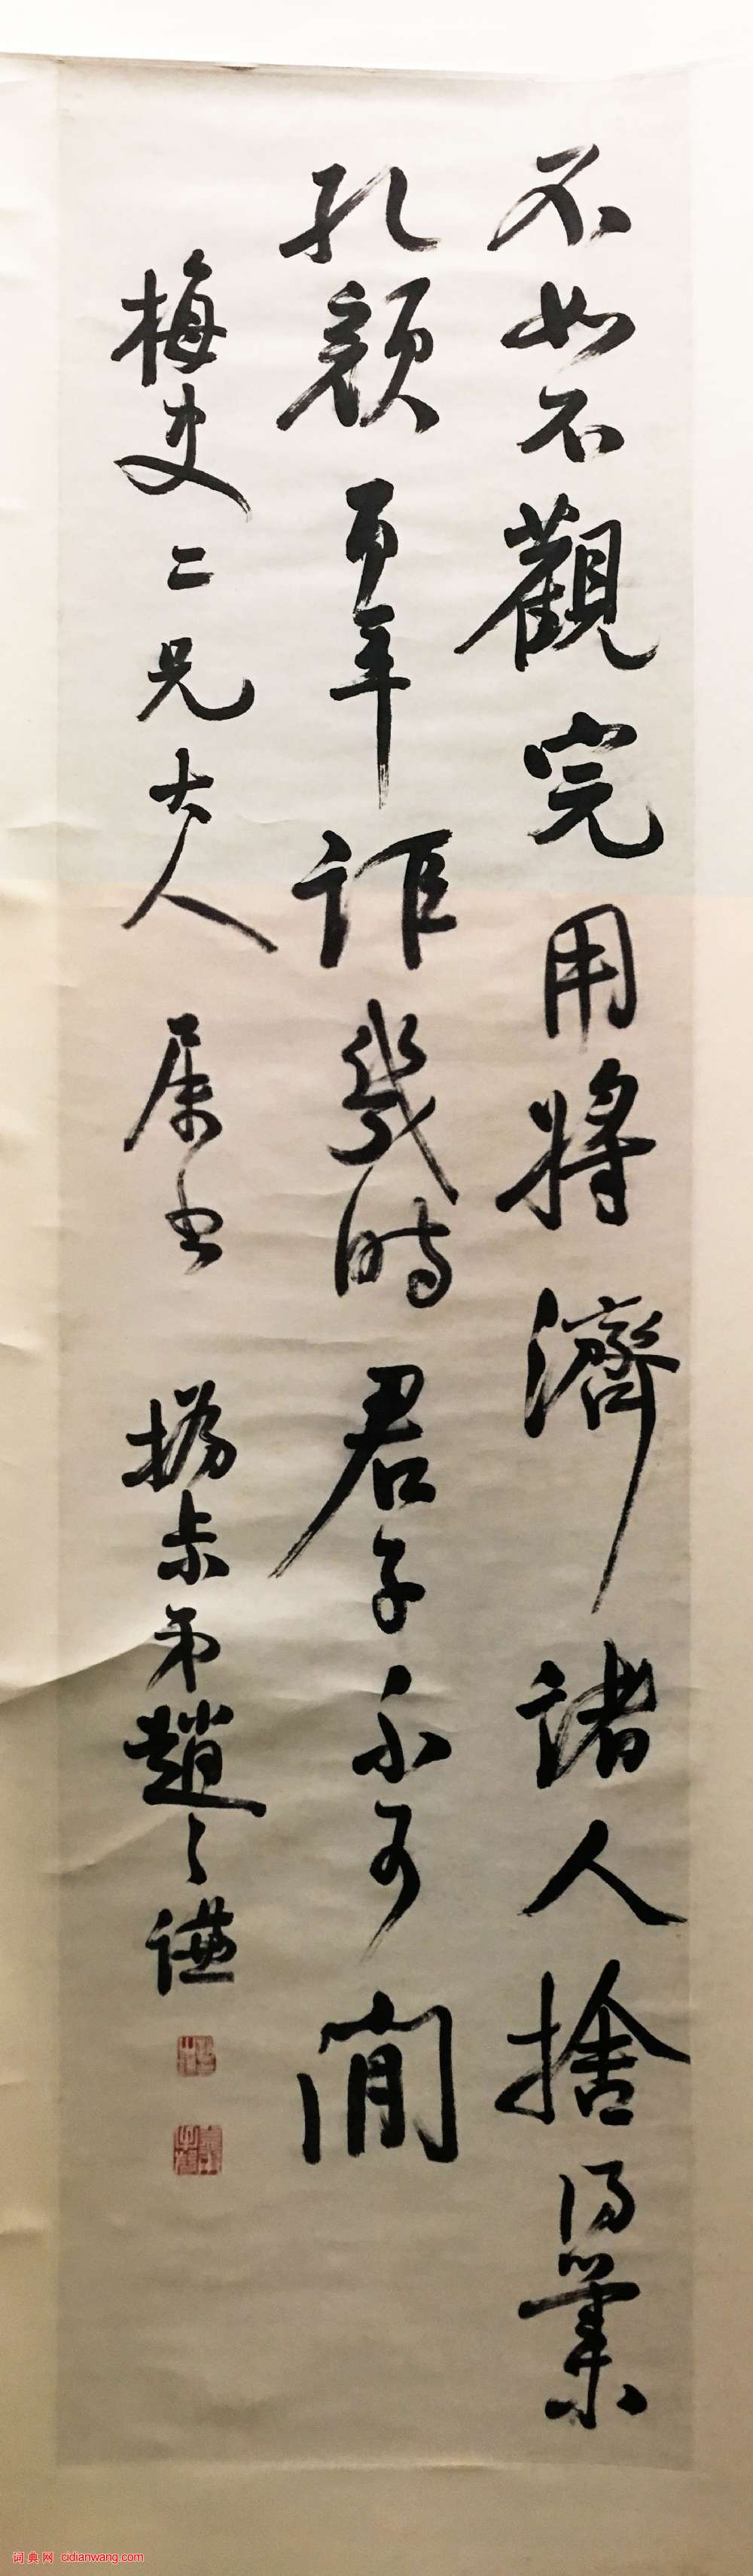 不如不觀完用將濟諸人捨得業
孔顏百年詎幾時君子不可閒
梅史二兄大人屬書 撝未弟趙之謙
词典网 cidianwang.com